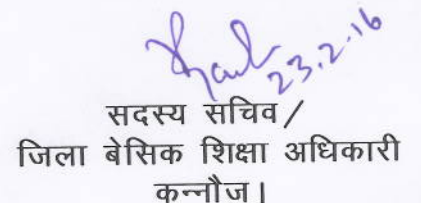 23.2.16
सदस्य सचिव/
जिला बेसिक शिक्षा अधिकारी
कन्नौज।